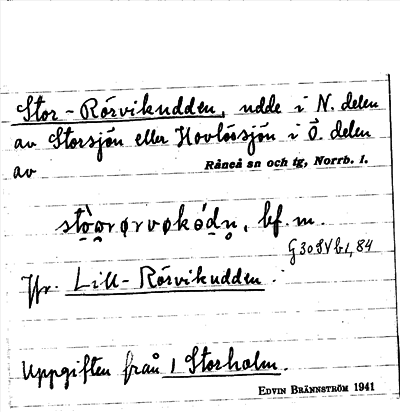 Stor-Rörvikudden, udde i N. delen
av Storsjön eller Hovlössjön i Ö. delen
av Råneå sn och tg, Norrb. l.
bf. m.
G 30 SV b1, 84
Jfr. Lill-Rörvikudden.
Uppgiften från 1 Storholm.
EDVIN BRÄNNSTRÖM 1941